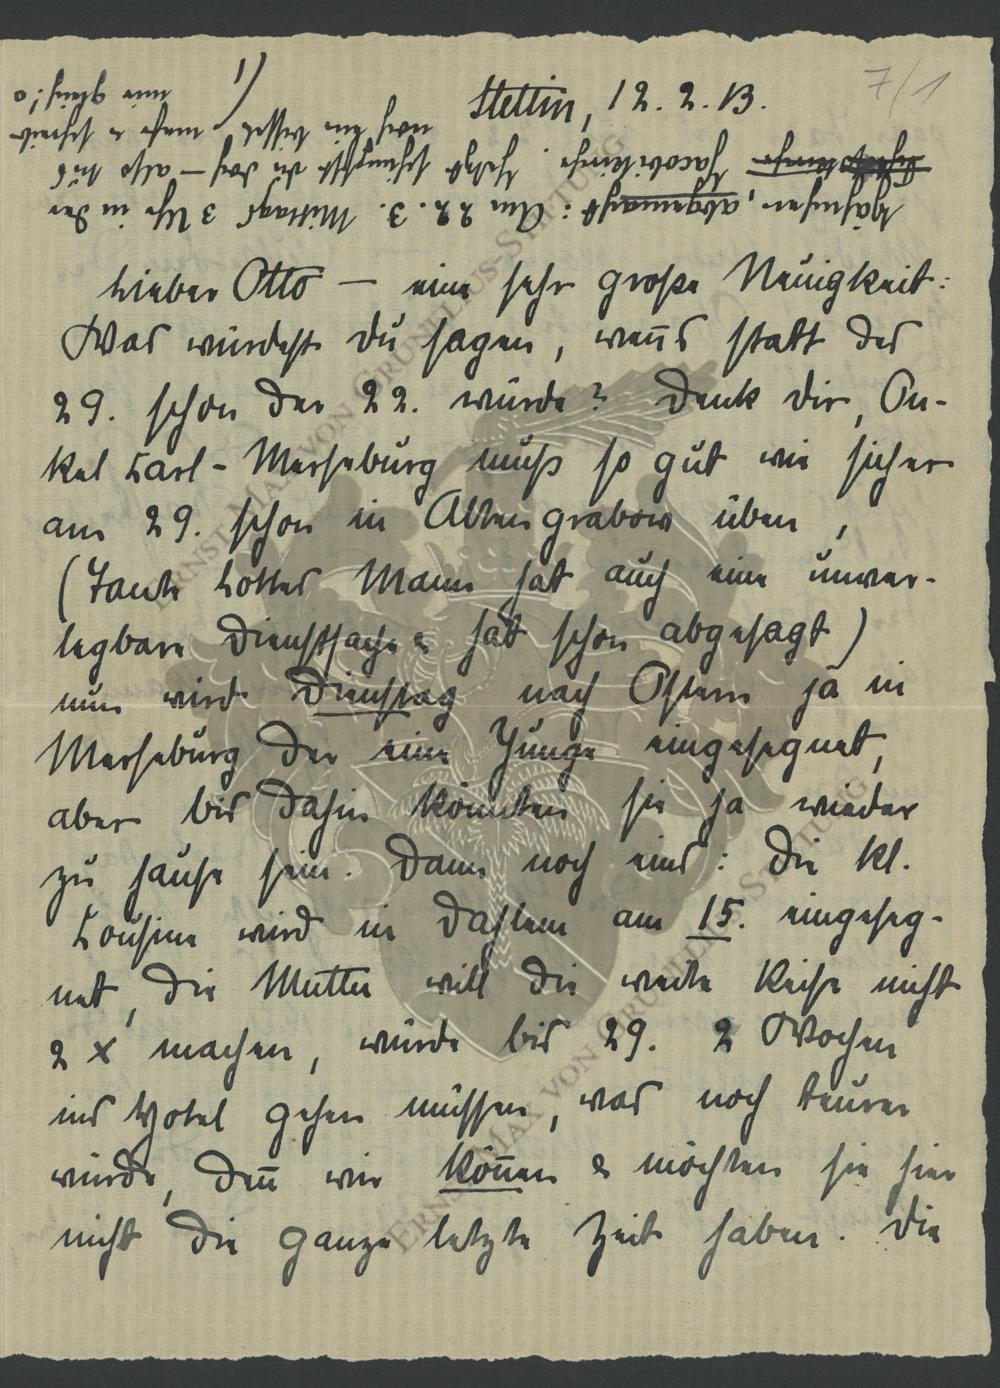 7/1
Stettin, 12. 2. 13.
1)
abgemacht: Am 22. 3. Mittags 3 Uhr in der
Jacobikirche. Jetzt schimpfst du doch – also tus
noch ein bissel mehr & schreib
mir gleich! O
Lieber Otto — eine sehr große Neuigkeit:
Was würdest du sagen, wenns statt des
29. schon der 22. würde? Denk dir, On-
kel Carl-Merseburg muß so gut wie sicher
am 29. schon in Altengrabow üben,
(Tante Lottes Mann hat auch eine unver-
legbare Dienstsache & hat schon abgesagt)
nun wird Dienstag nach Ostern ja in
Merseburg der eine Junge eingesegnet,
aber bis dahin könnten sie ja wieder
zu hause sein. Dann noch eins: die kl.
Cousine wird in Dahlem am 15. eingeseg-
net, die Mutter will die weite Reise nicht
2 x machen, würde bis 29. 2 Wochen
ins Hotel gehen müssen, was noch teurer
würde, denn wir können & möchten sie hier
nicht die ganze letzte Zeit haben. Die
ERNST-MAX VON GRUNELIUS-STIFTUNG
ERNST-MAX VON GRUNELIUS-STIFTUNG